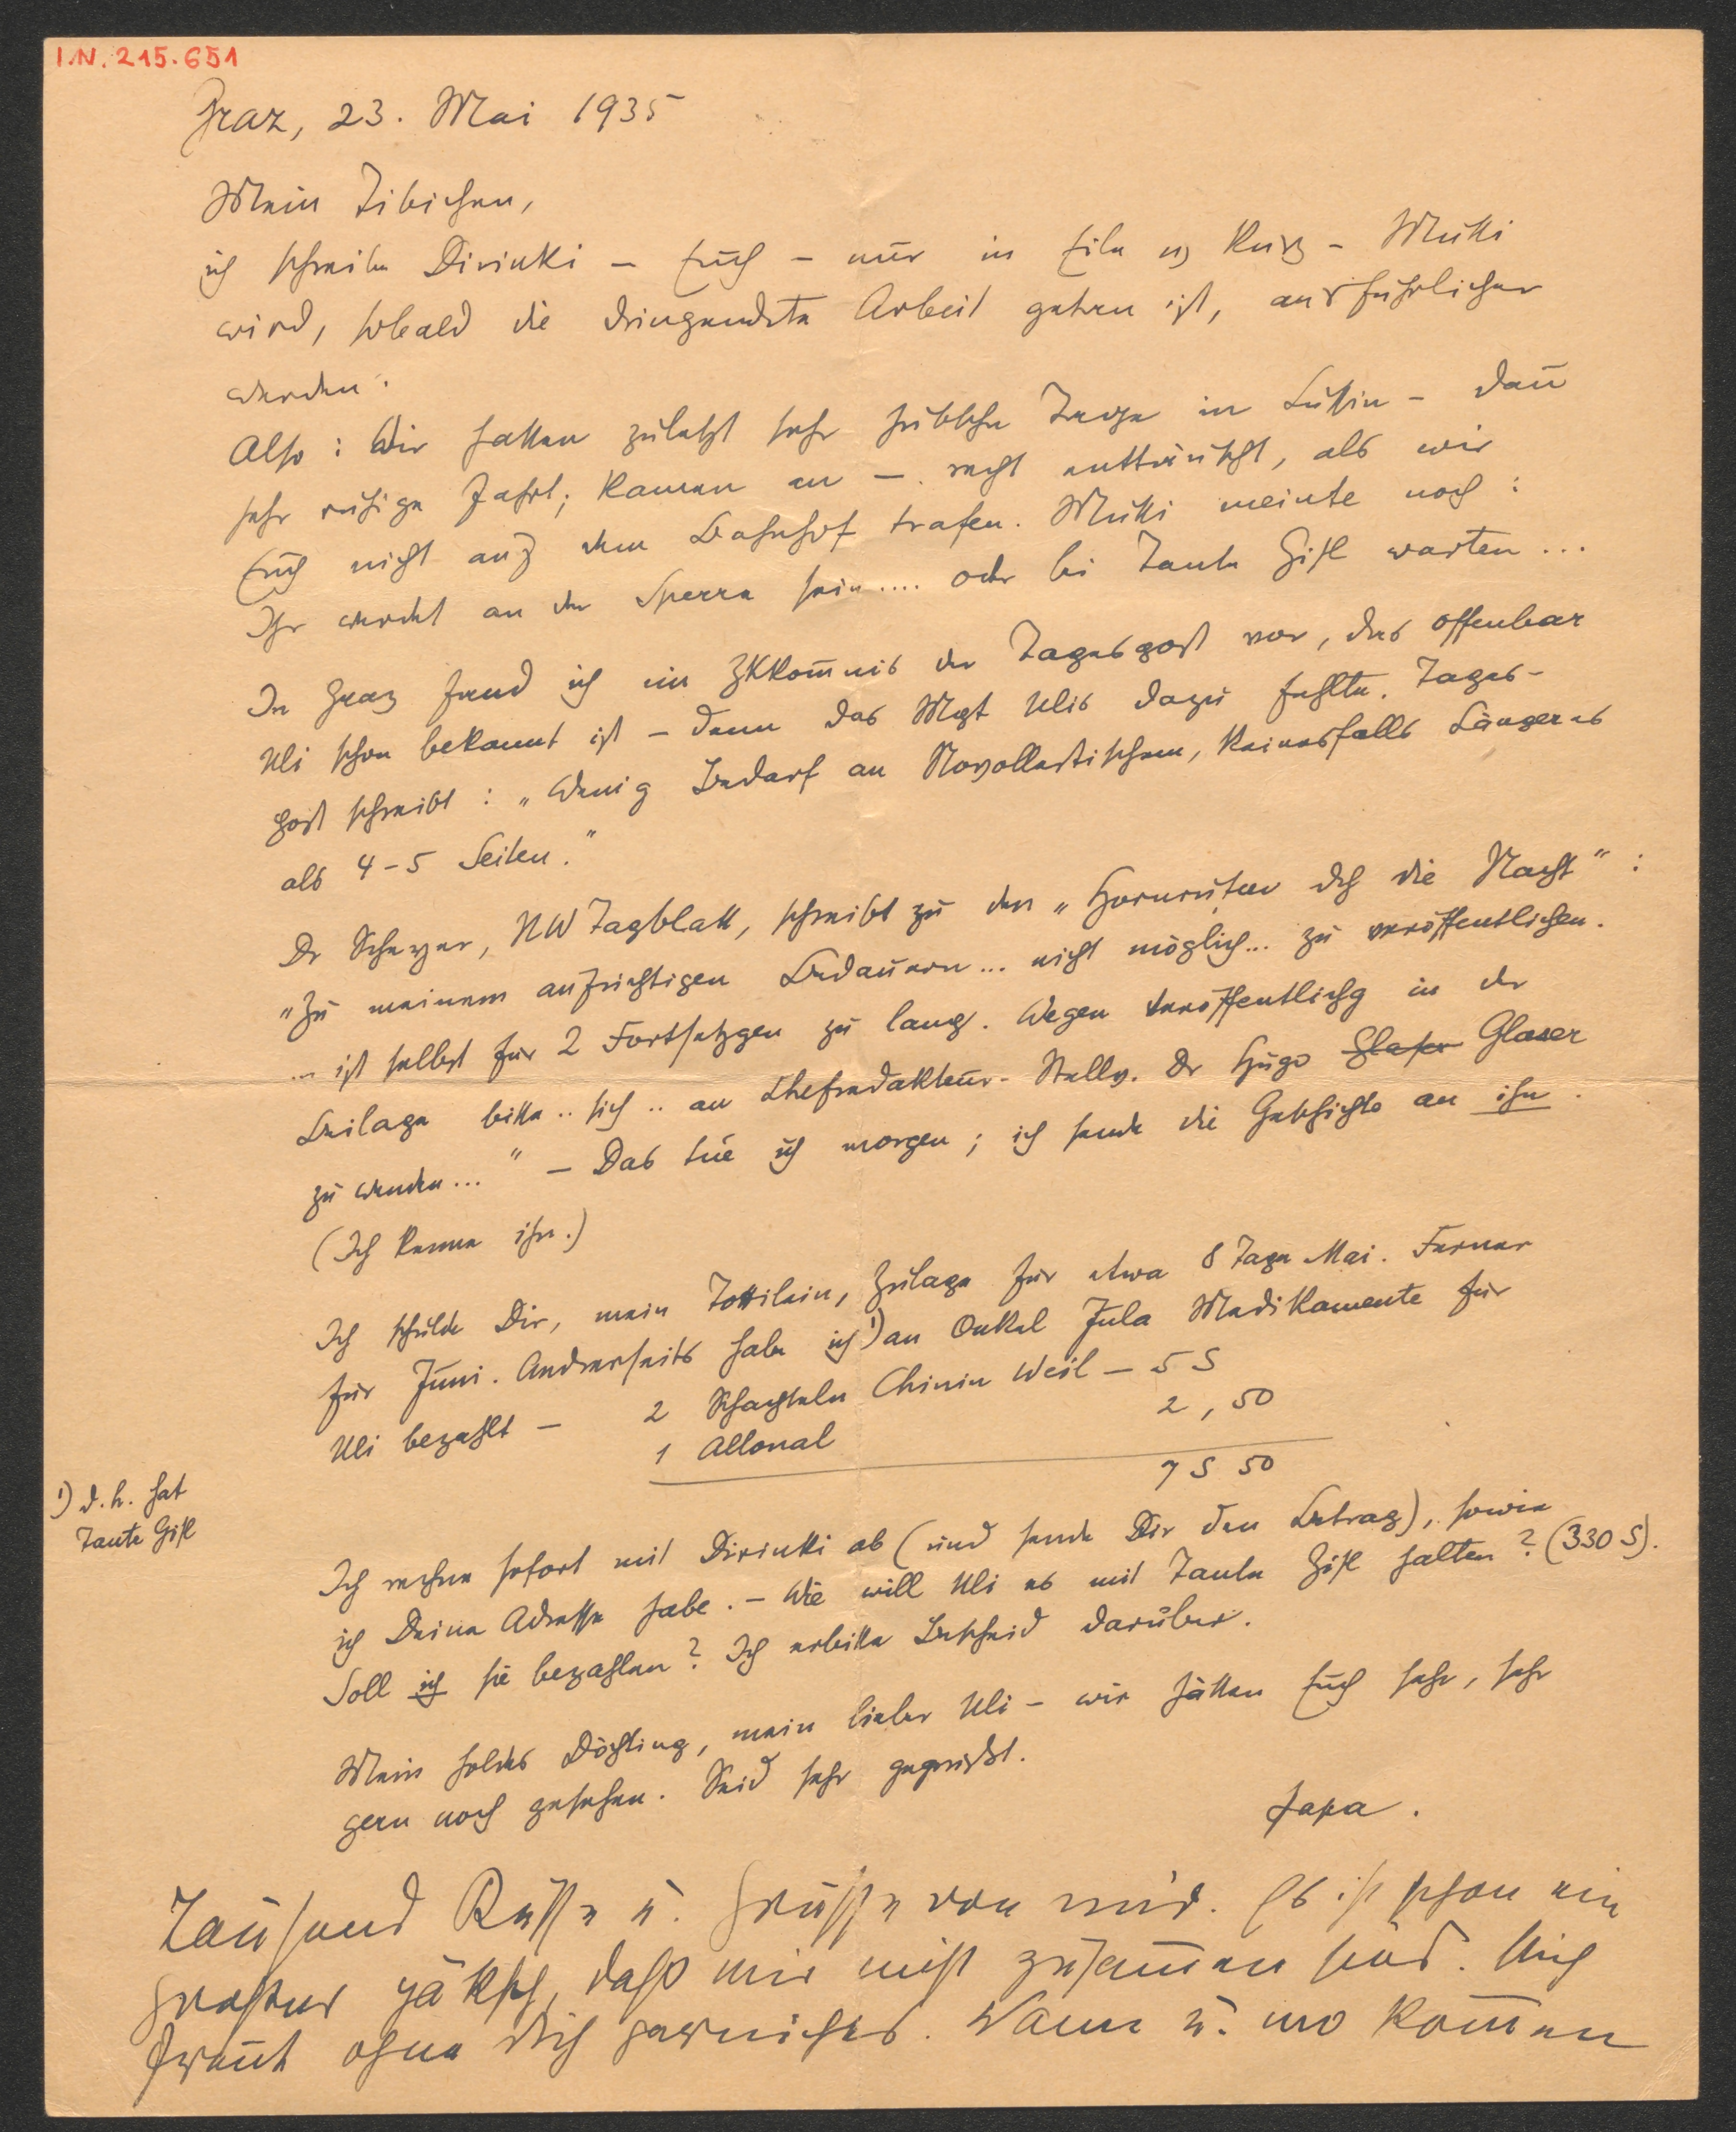 I.N. 215.651
Graz, 23. Mai 1935
Mein Zibichen,
ich schreibe Dirinkki – Euch – nur in Eile u. kurz – Mutti
wird, sobald die dringendste Arbeit getan ist, ausführlicher
werden.
Also: Wir hatten zuletzt sehr hübsche Tage in – dañ
sehr ruhige Fahrt; kamen an – recht enttäuscht, als wir
Euch nicht auf dem Bahnhof trafen. Mutti meinte noch:
Ihr werdet an der Sperre sein .... oder bei Tante Gisl warten ...
In Graz fand ich ein der Tagespost vor, das offenbar
Uli schon bekannt ist – denn das Mskpt Ulis dazu fehlte. Tages-
post schreibt: „Wenig Bedarf an Novellistischem, keinesfalls Längeres
als 4–5 Seiten.“
Dr Scheyer, NW Tagblatt, schreibt zu den „Hornrufen dch die Nacht“:
„Zu meinem aufrichtigen Bedauern ... nicht möglich ... zu veröffentlichen.
... ist selbst für 2 Fortsetzgen zu lang. Wegen Veröffentlichg in der
Beilage bitte .. sich .. an Chefredakteur-Stellv. Dr Hugo Glaser Glaser
zu wenden ...“ – Das tue ich morgen; ich sende die Geschichte an ihn.
(Ich kenne ihn.)
Ich schulde Dir, mein Tottilein, Zulage für etwa 8 Tage Mai. Ferner
für Juni. Anderseits habe ich ¹) an Onkel Jula Medikamente für
Uli bezahlt – 2 Schachteln Chinin Weil – 5 S
1 Allonal 2,50
7 S 50
¹) d.h. hat
Tante Gisl
Ich rechne sofort mit Dirinkki ab (und sende Dir den Betrag), sowie
ich Deine Adresse habe. – Wie will Uli es mit Tante Gisl halten? (330 S).
Soll ich sie bezahlen? Ich erbitte Bescheid darüber.
Mein holdes Döchting, mein lieber Uli – wir hätten Euch sehr, sehr
gern noch gesehen. Seid sehr gegrüsst.
Papa.
Tausend Küsse u. Grüsse von mir. Es ist schon ein
grosser, daß wir nicht zusammen sind. Mich
freut ohne Dich garnichts. Wann u. wo kom̄en